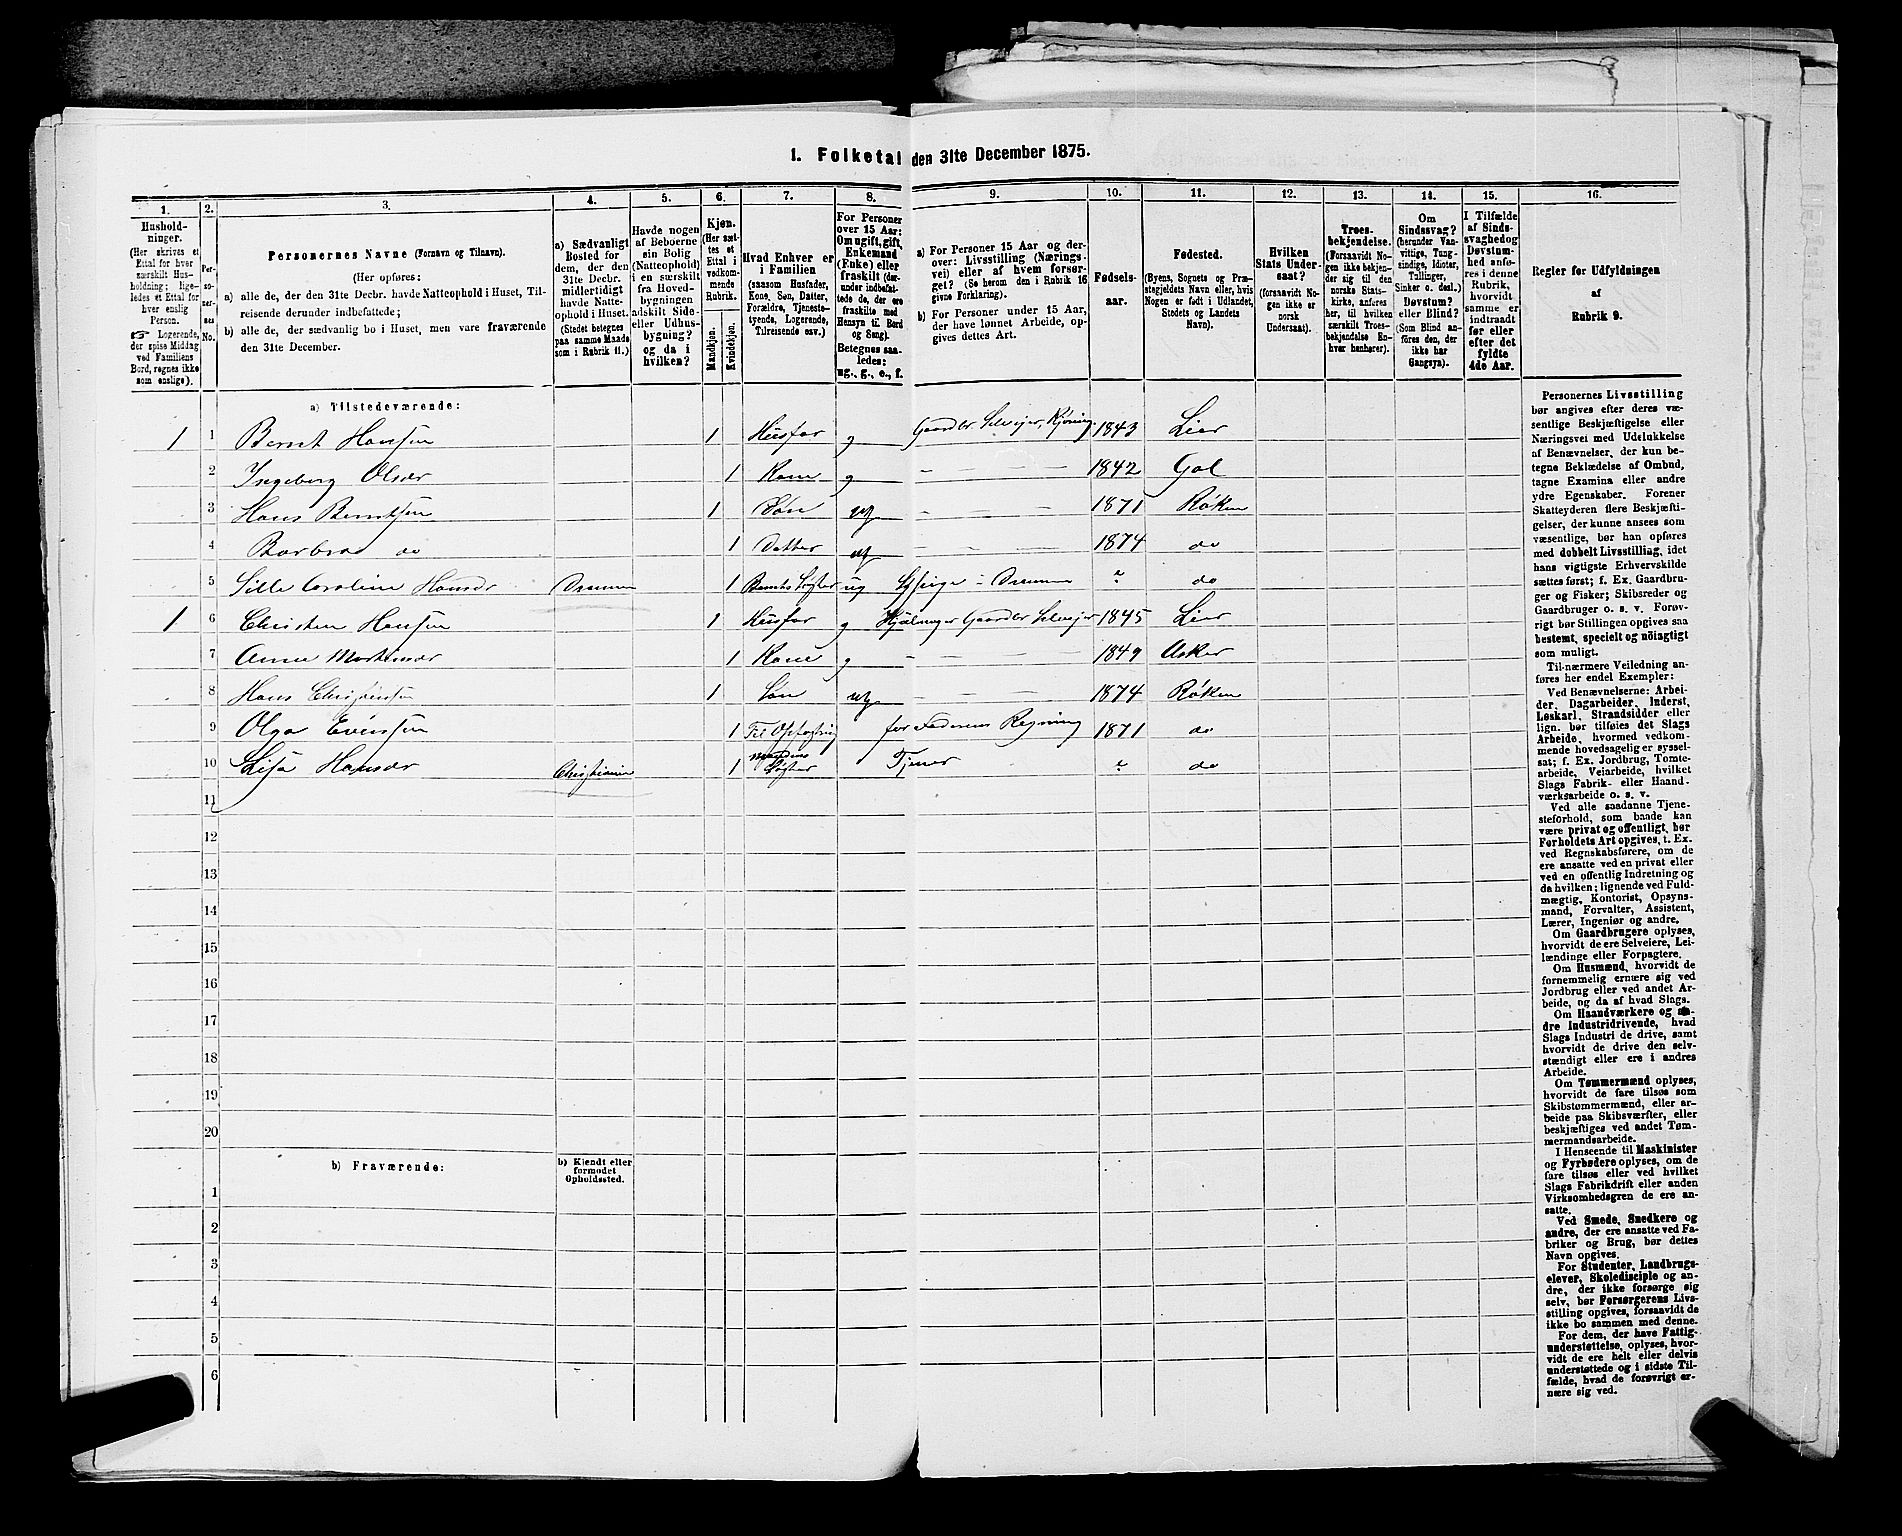 1. Folketal den 31te December 1875.
1.
2.
3.
4.
5.
6.
7.
8.
9.
10.
11.
12.
13.
14.
15.
16.
Hushold-
ninger.
(Her skrives et
Ettal for hver
særskilt Hus-
holdning; lige-
ledes et Ettal for
hver enslig
Person.
☞ Logerende,
der spise Middag
ved Familiens
Bord, regnes ikke
som enslige).
Per-
so-
ner-
nes
No.
Personernes Navne (Fornavn og Tilnavn).
(Her opføres:
a) alle de, der den 31te Decbr. havde Natteophold i Huset, Til-
reisende derunder indbefattede;
b) alle de, der sædvanlig bo i Huset, men vare fraværende
den 31te December.
a) Sædvanligt
Bosted for
dem, der den
31te Decbr.
midlertidigt
havde Natte-
ophold i Huset.
(Stedet betegnes
paa samme Maade
som i Rubrik 11.)
Havde nogen
af Beboerne
sin Bolig
(Natteophold)
i en særskilt
fra Hoved-
bygningen
adskilt Side-
eller Udhus-
bygning?
og da i
hvilken?
Kjøn.
(Her sæt-
tes et
Ettal i
vedkom-
mende
Rubrik.
Mandkjøn.
Kvindekjøn.
Hvad Enhver er
i Familien
(saasom Husfader,
Kone, Søn, Datter,
Forældre, Tjeneste-
tyende, Logerende,
Tilreisende osv.)
For Personer
over 15 Aar:
Om ugift, gift,
Enkemand
(Enke) eller
fraskilt (der-
under indbefat-
tede de, der ere
fraskilte med
Hensyn til Bord
og Seng).
Betegnes saa-
ledes:
ug., g., e., f.
a) For Personer 15 Aar og der-
over: Livsstilling (Nærings-
vei) eller af hvem forsør-
get? (Se herom den i Rubrik 16
givne Forklaring).
b) For Personer under 15 Aar,
der have lønnet Arbeide, op-
gives dettes Art.
Fødsels-
aar.
Fødested.
(Byens, Sognets og Præ-
stegjeldets Navn eller, hvis
Nogen er født i Udlandet,
Stedets og Landets
Navn).
Hvilken
Stats Under-
saat?
(forsaavidt No-
gen ikke er
norsk
Undersaat).
Troes-
bekjendelse.
(Forsaavidt No-
gen ikke bekjen-
der sig til den
norske Stats-
kirke, anføres
her, til hvilken
særskilt Troes-
bekjendelse En-
hver henhører).
Om
Sindssvag?
(herunder Van-
vittige, Tung-
sindige, Idioter,
Tullinger,
Sinker o. desl.)
Døvstum?
eller Blind?
(Som Blind an-
føres den, der
ikke har
Gangsyn).
I Tilfælde
af Sinds-
svaghed og
Døvstum-
hed anfø-
res i denne
Rubrik,
hvorvidt
samme er
indtraadt
før eller
efter det
fyldte
4de Aar.
Regler for Udfyldningen
af
Rubrik 9.
a) Tilstedeværende:
1 1 Bernt Hansen 1 Husfar g Gaardbr Selveier, Kjøring 1843 Lier
2 Ingeborg Olsdr 1 Kone g — — — 1842 Gol
3 Hans Berntsen 1 Søn ug — — — 1871 Røken
4 Barbra do 1 Datter ug — — — 1874 do
5 Sille Caroline Hansdr Drammen 1 Bernts Søster ug Sypige i Drammen " do
1 6 Christen Hansen 1 Husfar g Gaardbr Selveier 1845 Lier
7 Anne Mortensdr 1 Kone g — — — 1849 Asker
8 Hans Christensen 1 Søn ug — — — 1874 Røken
9 Olga Evensen 1 Til Opfostring for Faderens Regning 1871 do
10 Lisa Hansdr Christiania 1 Mandens Søster Tjener " do
11
12
13
14
15
16
17
18
19
20
b) Fraværende:
b) Kjendt eller
formodet
Opholdssted.
1
2
3
4
5
6
Personernes Livsstilling
bør angives efter deres væ-
sentlige Beskjæftigelse eller
Næringsvei med Udelukkelse
af Benævnelser, der kun be-
tegne Beklædelse af Ombud,
tagne Examina eller andre
ydre Egenskaber. Forener
Skatteyderen flere Beskjæfti-
gelser, der kunne ansees som
væsentlige, bør han opføres
med dobbelt Livsstilling, idet
hans vigtigste Erhvervskilde
sættes først; f. Ex. Gaardbru-
ger og Fisker; Skibsreder og
Gaardbruger o. s. v. Forøv-
rigt bør Stillingen opgives saa
bestemt, specielt og nöiagtigt
som muligt.
Til nærmere Veiledning an-
føres her endel Exempler:
Ved Benævnelserne: Arbei-
der, Dagarbeider, Inderst,
Løskarl, Strandsidder eller
lign. bør tilføies det Slags
Arbeide, hvormed vedkom-
mende hovedsagelig er syssel-
sat; f. Ex. Jordbrug, Tomte-
arbeide, Veiarbeide, hvilket
Slags Fabrik- eller Haand-
værksarbeide o. s. v.
Ved alle saadanne Tjene-
steforhold, som baade kan
være privat og offentligt, bør
Forholdets Art opgives, t. Ex.
ved Regnskabsførere, om de
ere ansatte ved en privat eller
ved en offentlig Indretning og
da hvilken; lignende ved Fuld-
mægtig, Kontorist, Opsyns-
mand, Forvalter, Assistent,
Lærer, Ingeniør og andre.
Om Gaardbrugere oplyses,
hvorvidt de ere Selveiere, Lei-
lændinge eller Forpagtere.
Om Husmænd, hvorvidt de
fornemmelig ernære sig ved
Jordbrug eller ved andet Ar-
beide, og da af hvad Slags.
Om Haandværkere og an-
dre Industridrivende, hvad
Slags Industri de drive, samt
hvorvidt de drive den selv-
stændigt eller ere i andres
Arbeide.
Om Tømmermænd oplyses,
hvorvidt de fare tilsøs som
Skibstømmermænd, eller ar-
beide paa Skibsværfter, eller
beskjæftiges ved andet Tøm-
mermandsarbeide.
I Henseende til Maskinister
og Fyrbødere oplyses, om de
fare tilsøs eller ved hvilket
Slags Fabrikdrift eller anden
Virksomhedsgren de ere an-
satte.
Ved Smede, Snedkere og
andre, der ere ansatte ved Fa-
briker og Brug, bør dettes
Navn opgives.
For Studenter, Landbrugs-
elever, Skoledisciple og an-
dre, der ikke forsørge sig
selv, bør Forsørgerens Livs-
stilling opgives, forsaavidt de
ikke bo sammen med denne.
For dem, der have Fattig-
understøttelse, oplyses, hvor-
vidt de ere helt eller delvis
understøttede og i sidste Til-
fælde, hvad de forøvrigt er-
nære sig ved.